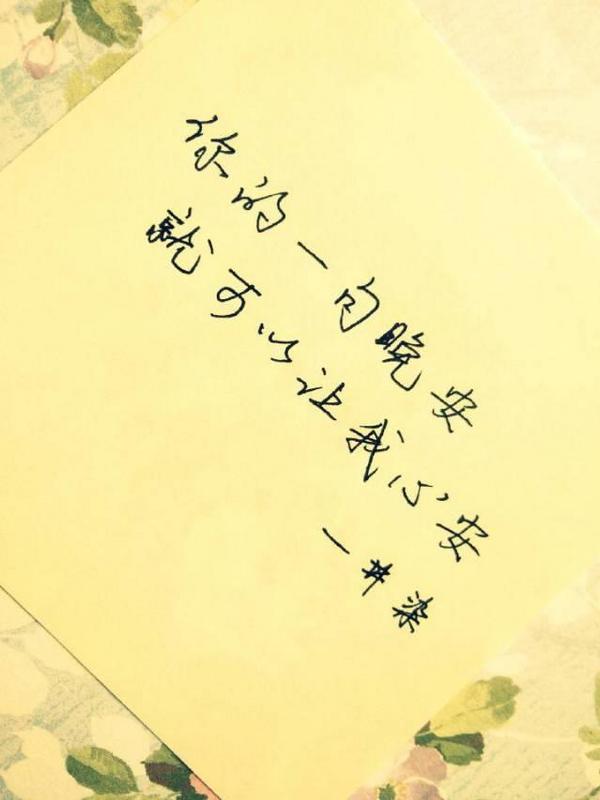 你的一句晚安
就可以让我心安
一井染